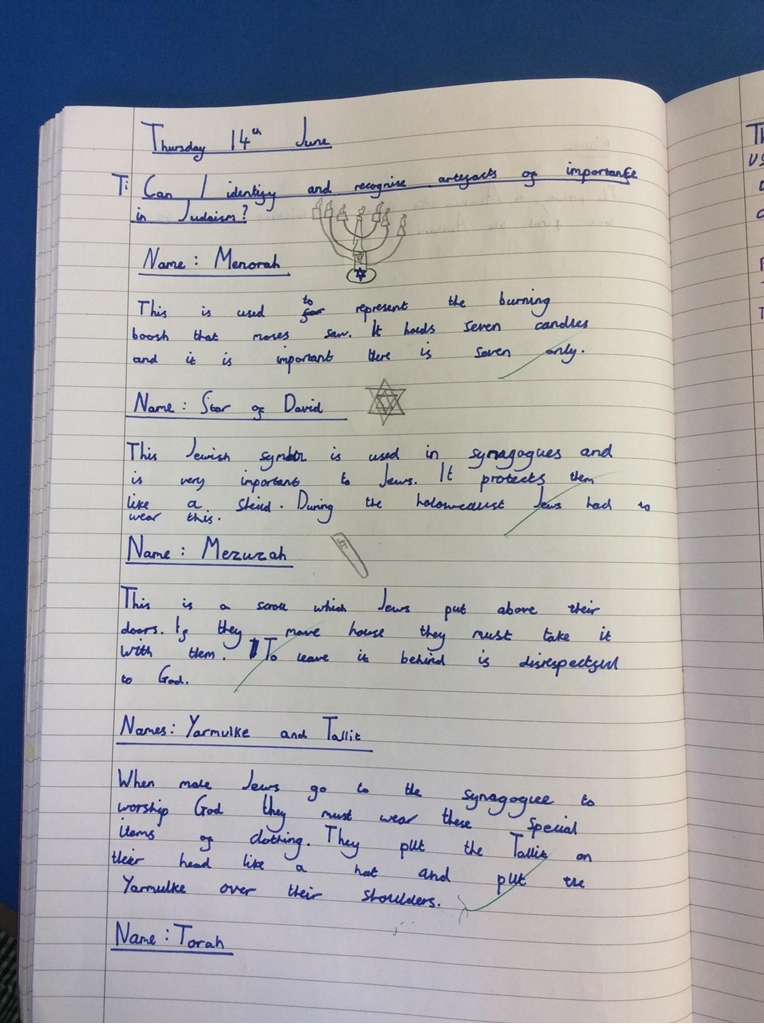 Thursday 14th June
T: Can I identify and recognise artefacts of importance
in Judaism?
Name: Menorah
This is used to represent the burning
boosh that moses saw. It holds seven candles
and it is important there is seven only.
Name: Star of David
This Jewish symbol is used in synagogues and
is very important to Jews. It protects them
like a sheild. During the holowcaust Jews had to
wear this.
Name: Mezuzah
This is a scroll which Jews put above their
doors. If they move house they must take it
with them. To leave it behind is disrespectful
to God.
Names: Yarmulke and Tallit
When male Jews go to the synagogue to
worship God they must wear these special
items of clothing. They put the Tallit on
their head like a hat and put the
Yarmulke over their shoulders.
Name: Torah